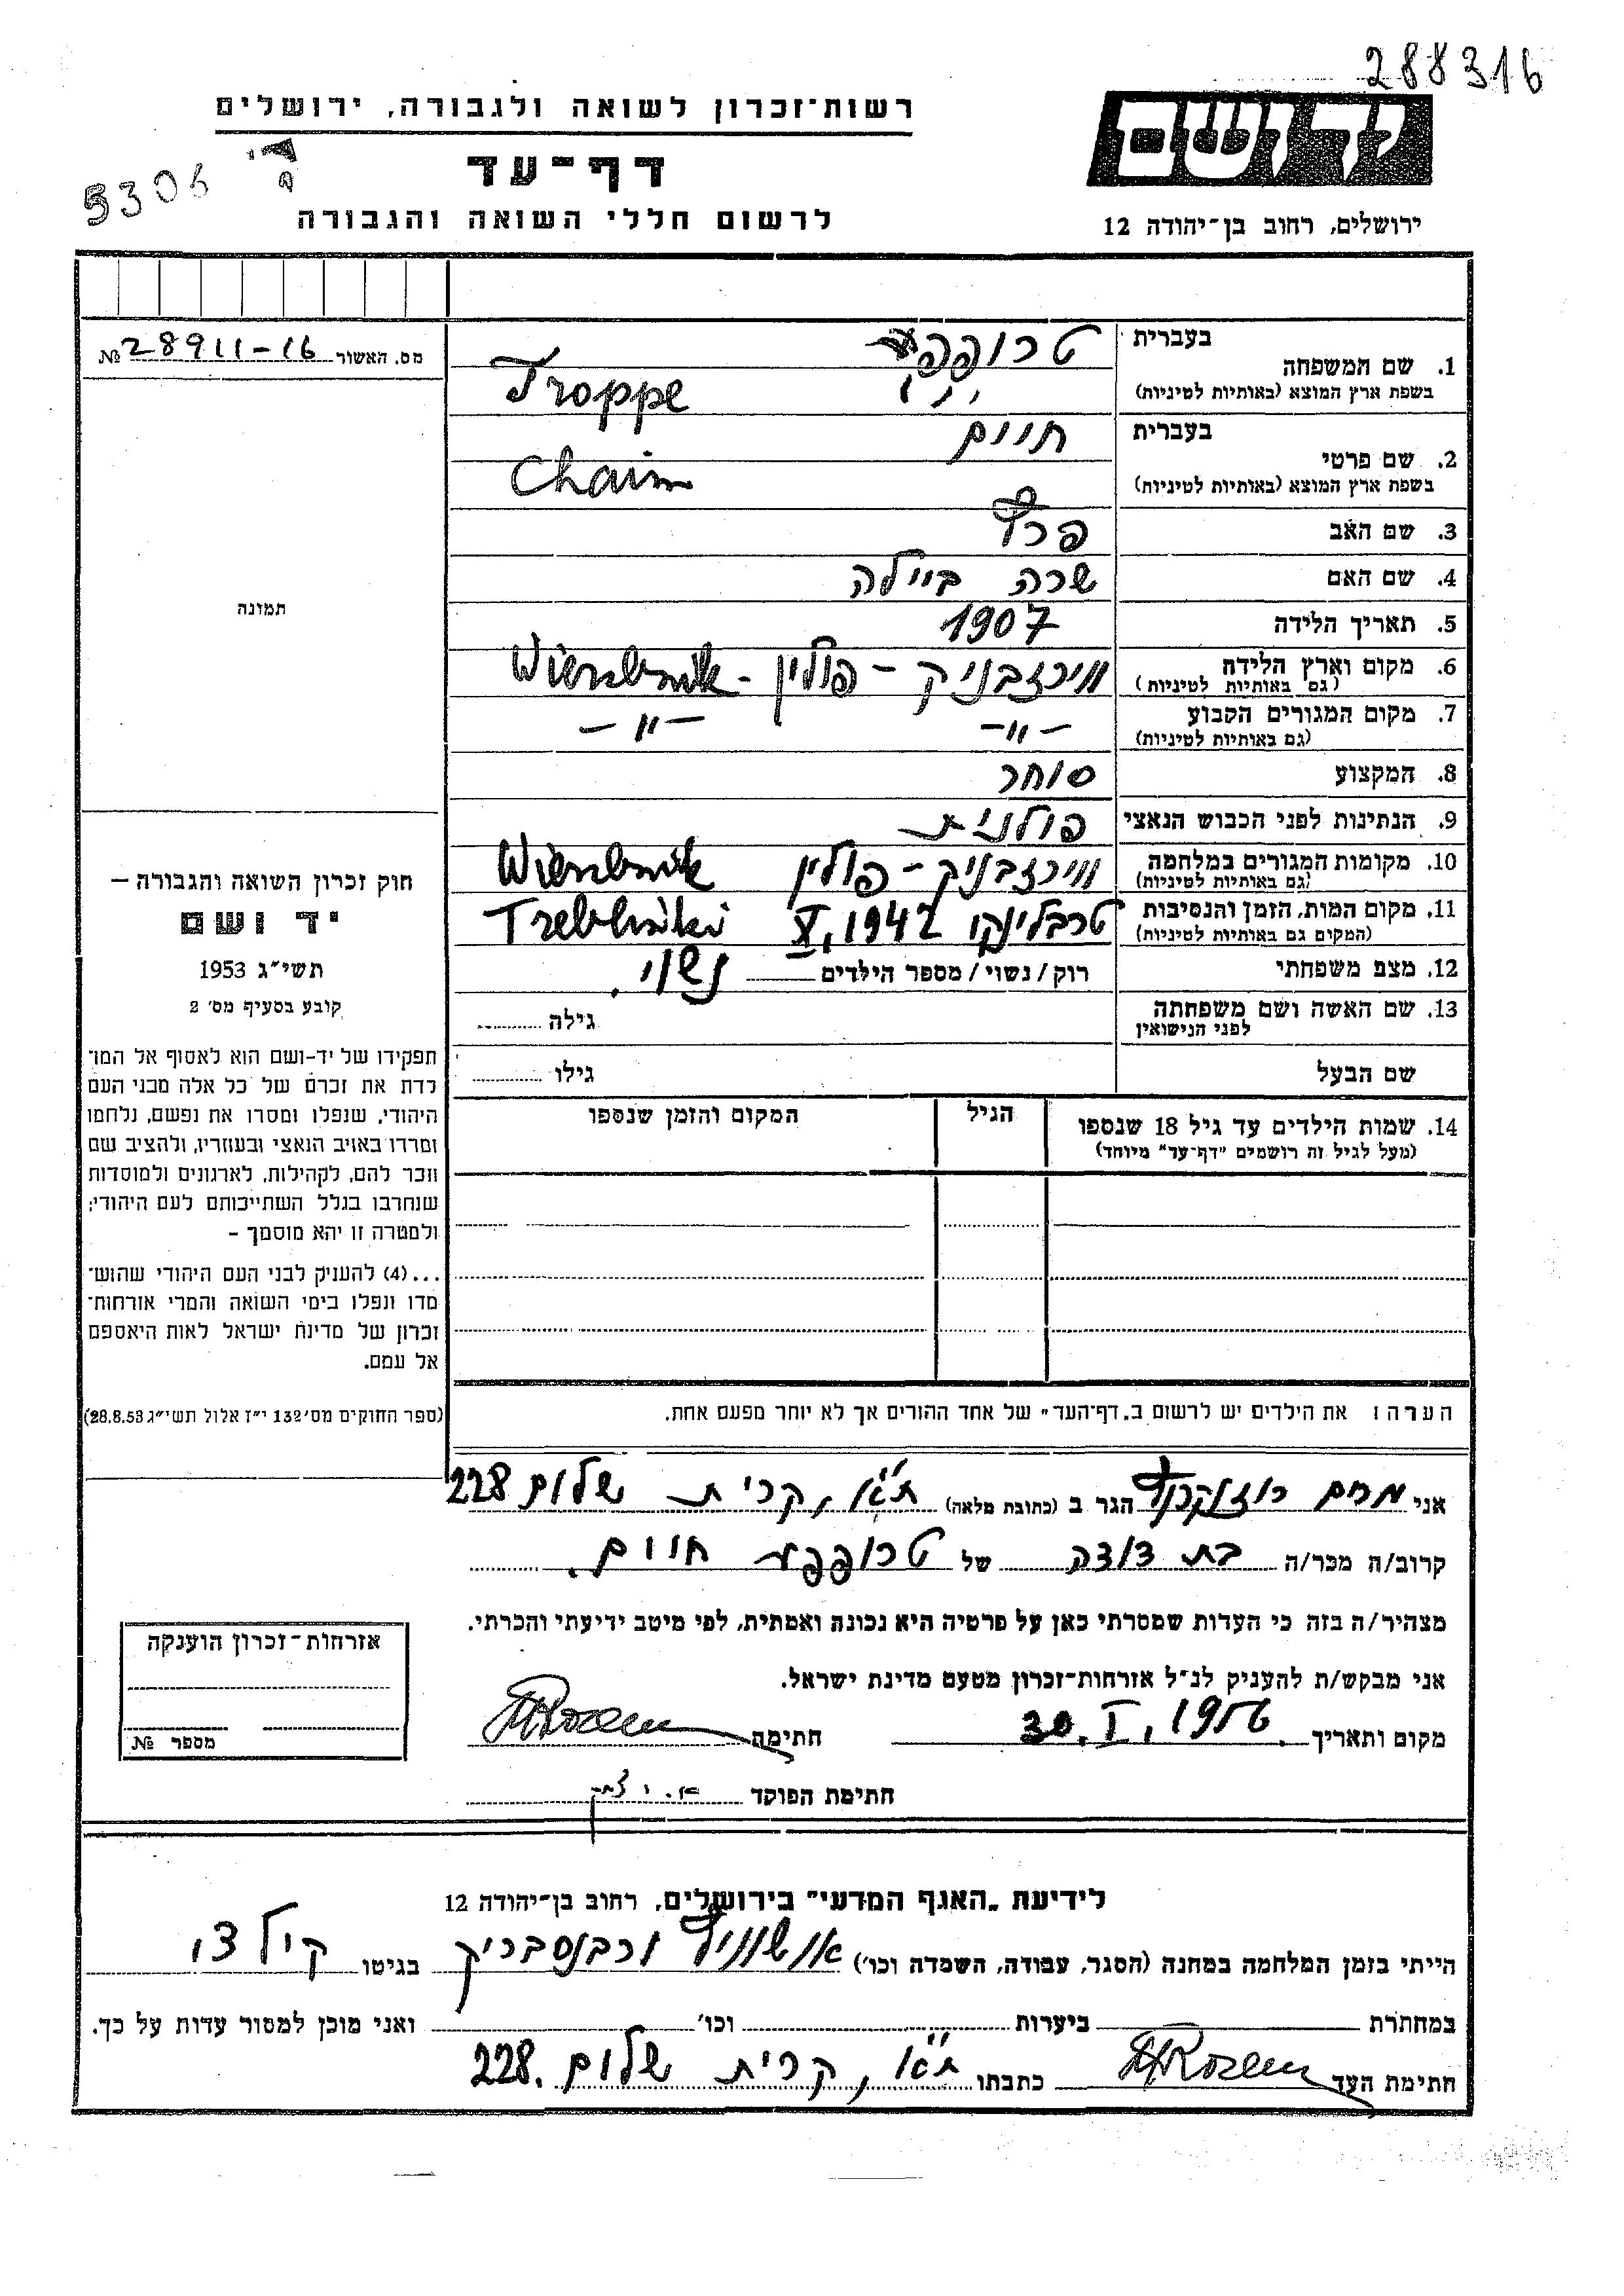 288316
רשות־זכרון לשואה ולגבורה, ירושלים
ידושם
5306
דף־עד
לרשום חללי השואה והגבורה
ירושלים, רחוב בן־יהודה 12
מס. האשור 28911-16 №
בעברית טרופפע
1. שם המשפחה
בשפת ארץ המוצא (באותיות לטיניות) Troppe
בעברית חיים
2. שם פרטי
בשפת ארץ המוצא (באותיות לטיניות) Chaim
3. שם האב
4. שם האם שרה ביילה
5. תאריך הלידה 1907
6. מקום וארץ הלידה ווירזבניק - פולין - Wierzbnik
(גם באותיות לטיניות)
7. מקום המגורים הקבוע -"- -"-
(גם באותיות לטיניות)
8. המקצוע סוחר
9. הנתינות לפני הכבוש הנאצי פולנית
10. מקומות המגורים במלחמה ווירזבניק - פולין Wierzbnik
(גם באותיות לטיניות)
11. מקום המות, הזמן והנסיבות טרבלינקי X, 1942
(המקום גם באותיות לטיניות)
12. מצב משפחתי רוק / נשוי / מספר הילדים נשוי.
13. שם האשה ושם משפחתה גילה
לפני הנישואין
שם הבעל גילו
14. שמות הילדים עד גיל 18 שנספו הגיל המקום והזמן שנספו
(מעל לגיל זה רושמים "דף־עד" מיוחד)
הערה: את הילדים יש לרשום ב„דף־העד" של אחד ההורים אך לא יותר מפעם אחת.
תמונה
חוק זכרון השואה והגבורה –
יד ושם
תשי"ג 1953
קובע בסעיף מס' 2
תפקידו של יד-ושם הוא לאסוף אל המו־
לדת את זכרם של כל אלה מבני העם
היהודי, שנפלו ומסרו את נפשם, נלחמו
ומרדו באויב הנאצי ובעוזריו, ולהציב שם
וזכר להם, לקהילות, לארגונים ולמוסדות
שנחרבו בגלל השתייכותם לעם היהודי;
ולמטרה זו יהא מוסמך –
...(4) להעניק לבני העם היהודי שהוש־
מדו ונפלו בימי השואה והמרי אזרחות־
זכרון של מדינת ישראל לאות היאספם
אל עמם.
(ספר החוקים מס' 132 י"ז אלול תשי"ג 28.8.53)
אני מרים הגר ב (כתובת מלאה) ת"א, קרית שלום 228
קרוב/ה מכר/ה בת דודה של טרופפע חיים.
מצהיר/ה בזה כי העדות שמסרתי כאן על פרטיה היא נכונה ואמתית, לפי מיטב ידיעתי והכרתי.
אני מבקש/ת להעניק לנ"ל אזרחות־זכרון מטעם מדינת ישראל.
מקום ותאריך 30. I, 1956 חתימה
חתימת הפוקד
אזרחות־זכרון הוענקה
מספר №
לידיעת „האגף המדעי" בירושלים, רחוב בן־יהודה 12
הייתי בזמן המלחמה במחנה (הסגר, עבודה, השמדה וכו') אושוויץ ורבנסבריק בגיטו
במחתרת ביערות וכו' ואני מוכן למסור עדות על כך.
חתימת העד כתבתו ת"א, קרית שלום 228.